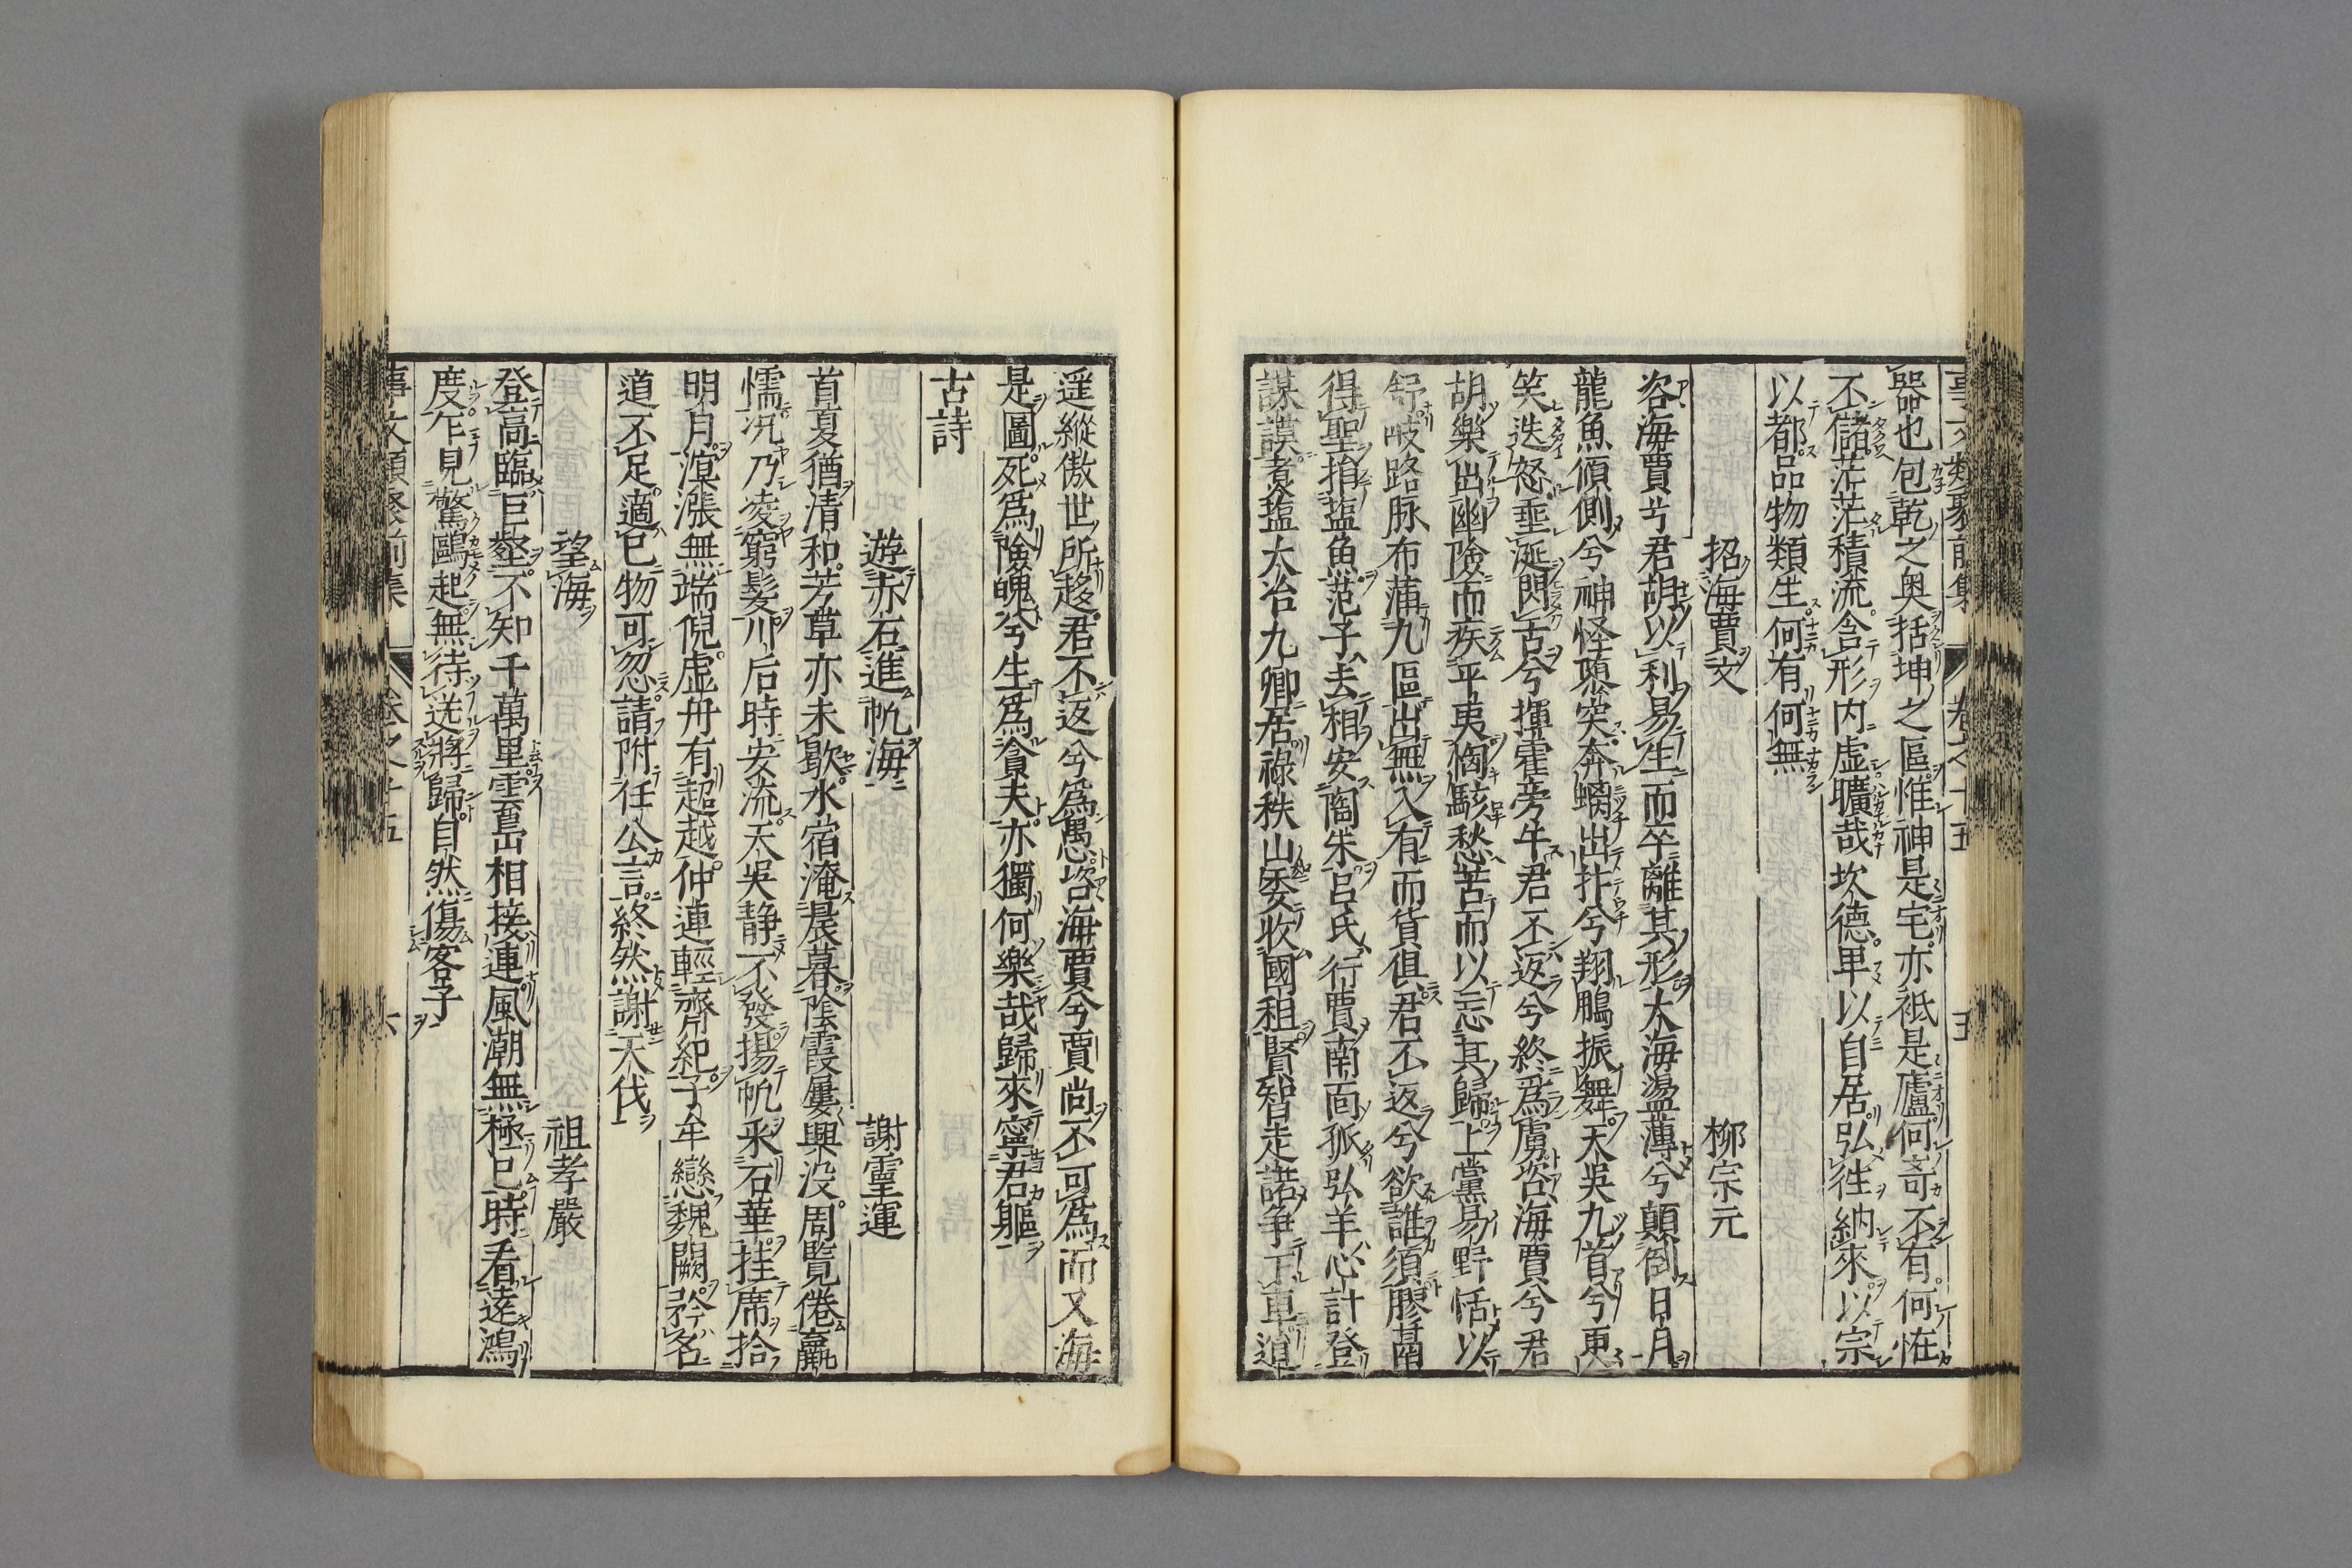 事文類聚前集 卷之十五 五
噐也包乾之奥括坤之區惟神是宅亦祗是廬何竒不有何恠
不儲茫茫積流含形内虚曠哉坎德卑以自居弘徃納來以宗
以都品物類生何有何無
招海賈文 柳宗元
咨海賈兮君胡以利易生而卒離其形大海盪薄兮顛倒日月
龍魚傾側兮神怪隳突奔螭出抃兮翔鵬振舞天吳九首兮更
笑迭怒垂涎閃舌兮揮霍旁午君不返兮終爲虜咨海賈兮君
胡樂出幽險而疾平夷恟駭愁苦而以忘其歸上黨易野恬以
舒岐路脉布蒲九區出無入有而貨俱君不返兮欲誰須膠鬲
得聖捐塩魚范子去相安陶朱吕氏行賈南面孤弘羊心計登
謀謨煮塩大冶九卿居祿秩山委收國租賢智走諾争下車道
遥縱傲世所趍君不返兮爲愚咨海賈兮賈尚不可爲而又海
是圖死爲險魄兮生爲貪夫亦獨何樂哉歸來寧君軀
古詩
遊赤石進帆海 謝靈運
首夏猶清和芳草亦未歇水宿淹晨暮陰霞屢興没周覧倦瀛
懦况乃凌窮髮川后時安流天吳静不發揚帆采石華挂席拾
明月溟漲無端倪虚舟有超越仲連輕齊紀子牟戀魏闕矜名
道不足適已物可忽請附任公言終然謝天伐
望海 祖孝嚴
登高臨巨壑不知千萬里雲島相接連風潮無極已時看逺鴻
度乍見驚鷗起無待送將歸自然傷客子
事文類聚前集 卷之十五 六